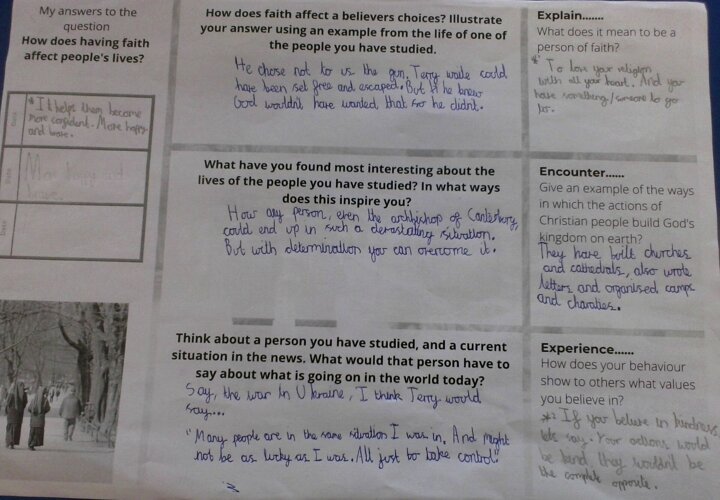 My answers to the
question
How does having faith
affect people's lives?
Date
*It helps them become
more confident. More happy
and brave.
Date
More happy and
brave.
Date
How does faith affect a believers choices? Illustrate
your answer using an example from the life of one of
the people you have studied.
He chose not to us the gun, Terry waite could
have been set free and escaped. But if he knew
God wouldn't have wanted, that so he didn't.
What have you found most interesting about the
lives of the people you have studied? In what ways
does this inspire you?
How any person, even the archbishop of Canterbury,
could end up in such a devastating situation.
But with determination you can overcome it.
Think about a person you have studied, and a current
situation in the news. What would that person have to
say about what is going on in the world today?
Say, the war in Ukraine, I think Terry would
say...
"Many people are in the same situation I was in. And might
not be as lucky as I was. All just to take control"
Explain.......
What does it mean to be a
person of faith?
* To love your religion
with all your heart. And you
have something/someone to go
to.
Encounter......
Give an example of the ways
in which the actions of
Christian people build God's
kingdom on earth?
They have built churches
and cathedrals, also wrote
letters and organised camps
and charities.
Experience......
How does your behaviour
show to others what values
you believe in?
* If you believe in kindness,
lets say. Your actions would
be kind they wouldn't be
the complete opposite.